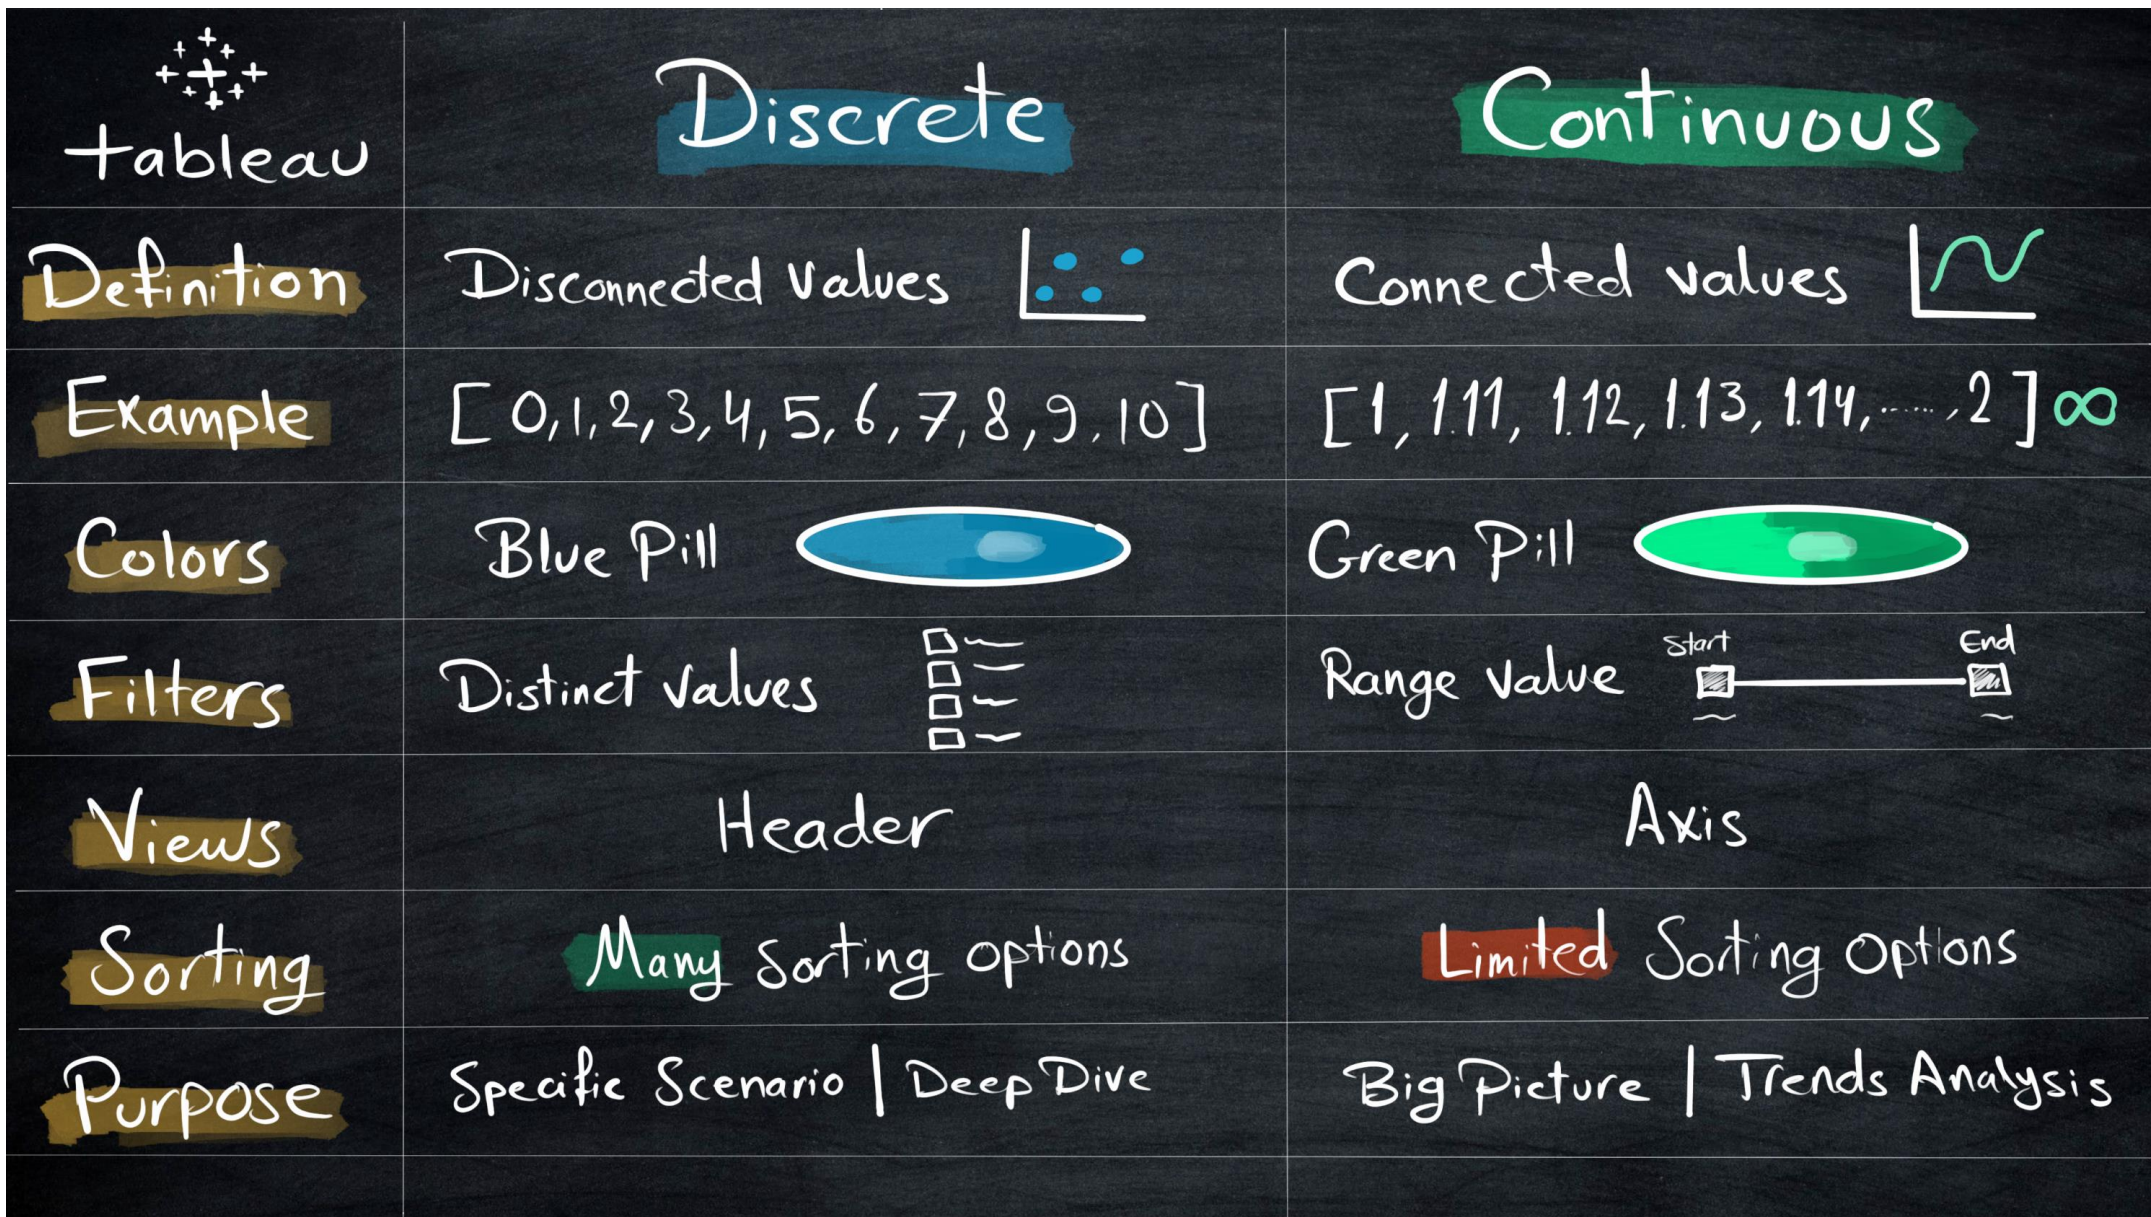 tableau
Discrete
Continuous
Definition
Disconnected values
Connected values
Example
[ 0, 1, 2, 3, 4, 5, 6, 7, 8, 9, 10 ]
[ 1, 1.11, 1.12, 1.13, 1.14, ......, 2 ] ∞
Colors
Blue Pill
Green Pill
Filters
Distinct values
Range value
Start
End
Views
Header
Axis
Sorting
Many Sorting options
Limited Sorting Options
Purpose
Specific Scenario | Deep Dive
Big Picture | Trends Analysis